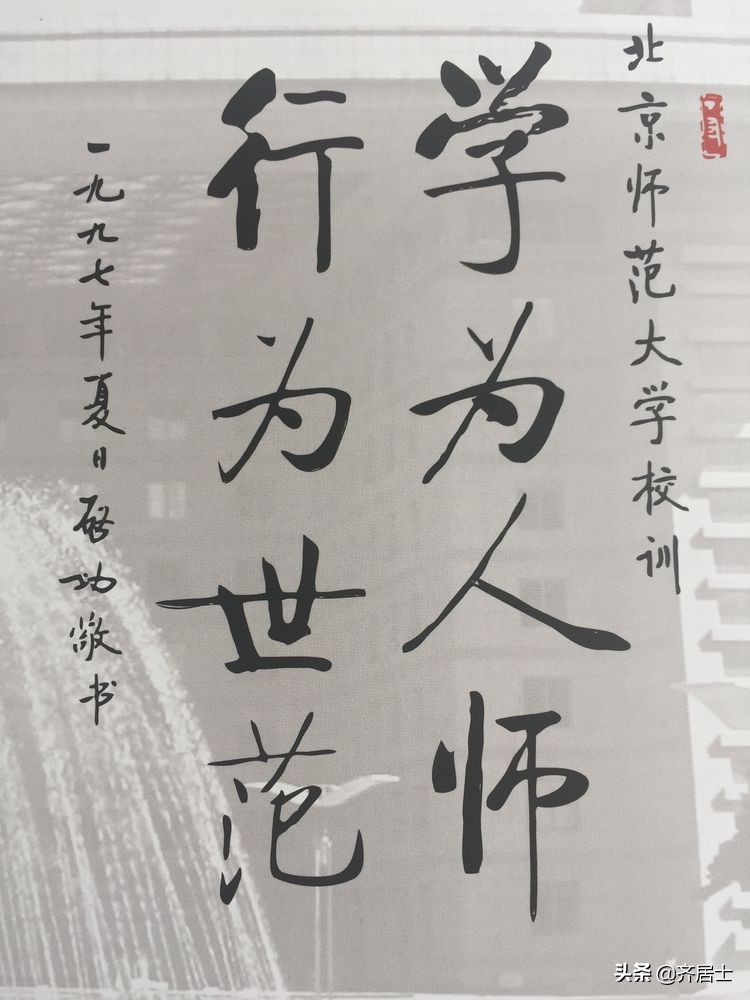 北京师范大学校训
学为人师
行为世范
一九九七年夏日启功敬书
头条 @齐居士